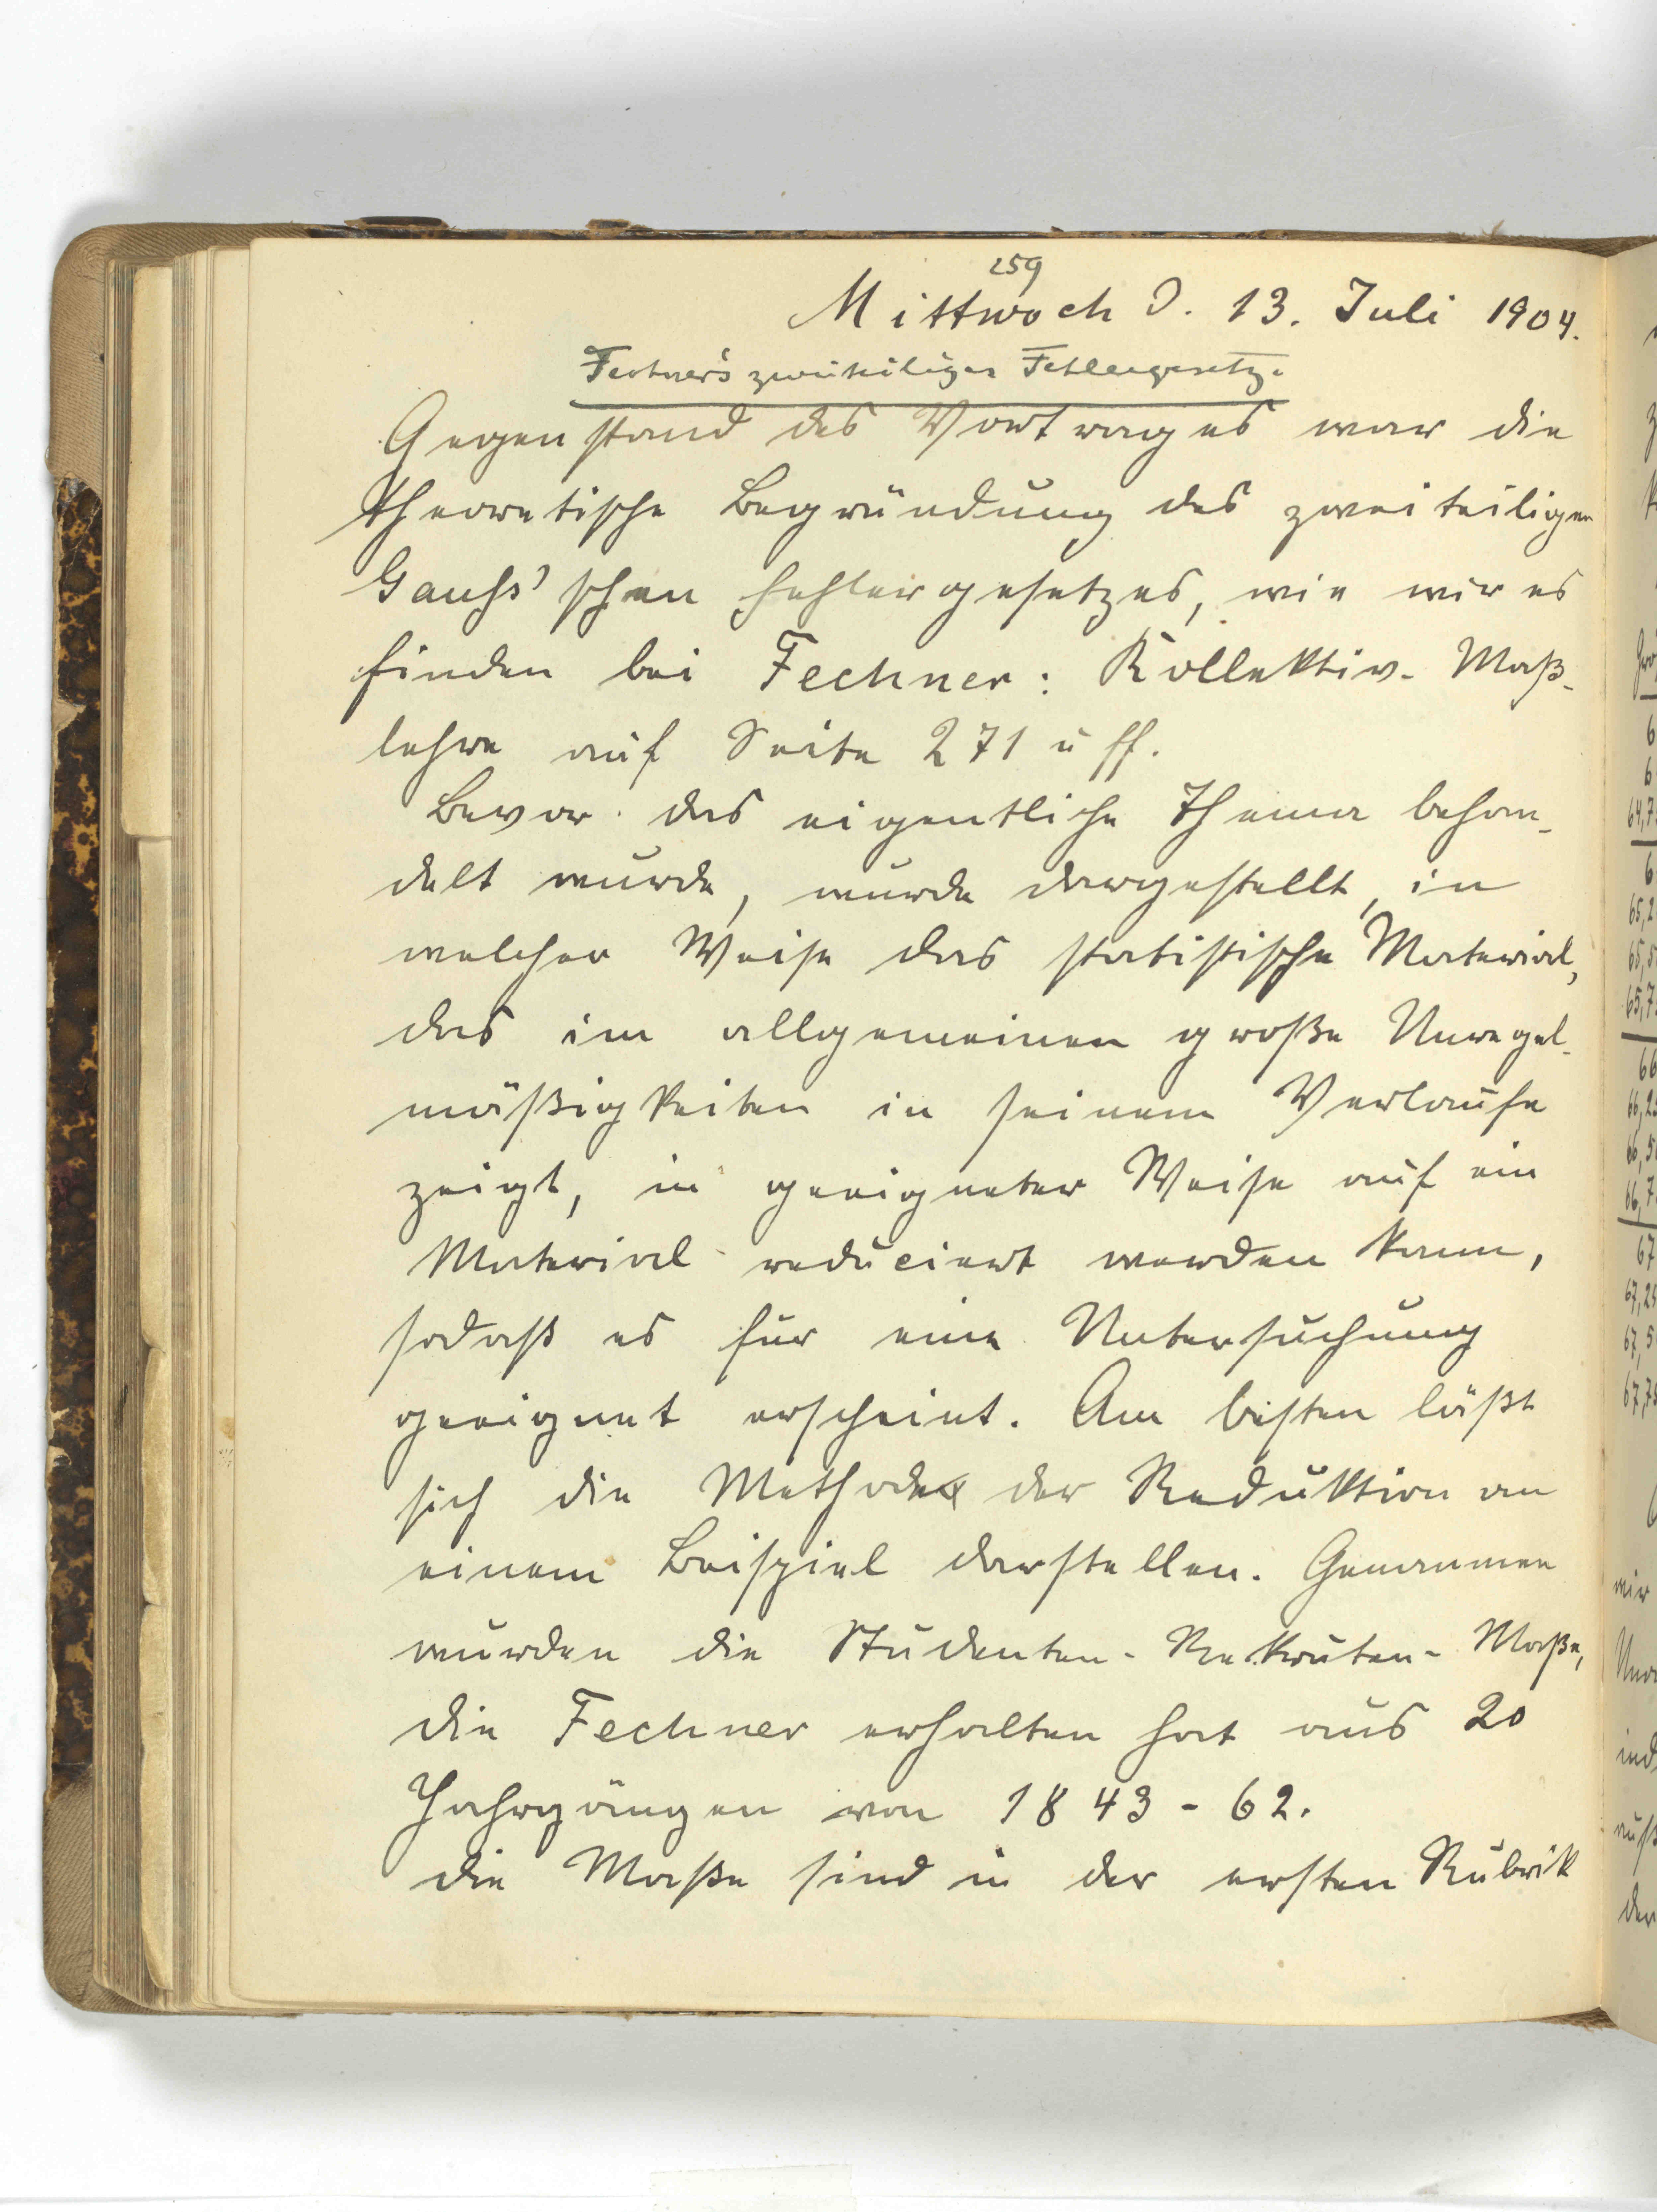 259
Mittwoch d. 13. Juli 1904.
Fechner's zweiteiliges Fehlergesetz.
Gegenstand des Vortrages war die
theoretische Begründung des zweiteiligen
Gauss'schen Fehlergesetzes, wie wir es
finden bei Fechner: Kollektiv-Maß-
lehre auf Seite 271 u ff.
Bevor das eigentliche Thema behan-
delt wurde, wurde dargestellt, in
welcher Weise das statistische Material,
das im allgemeinen große Unregel-
mäßigkeiten in seinem Verlaufe
zeigt, in geeigneter Weise auf ein
Material reduciert werden kann,
sodaß es für eine Untersuchung
geeignet erscheint. Am besten läßt
sich die Methode der Reduktion an
einem Beispiel darstellen. Genommen
wurden die Studenten-Rekruten-Maße,
die Fechner erhalten hat aus 20
Jahrgängen von 1843-62.
die Maße sind in der ersten Rubrik